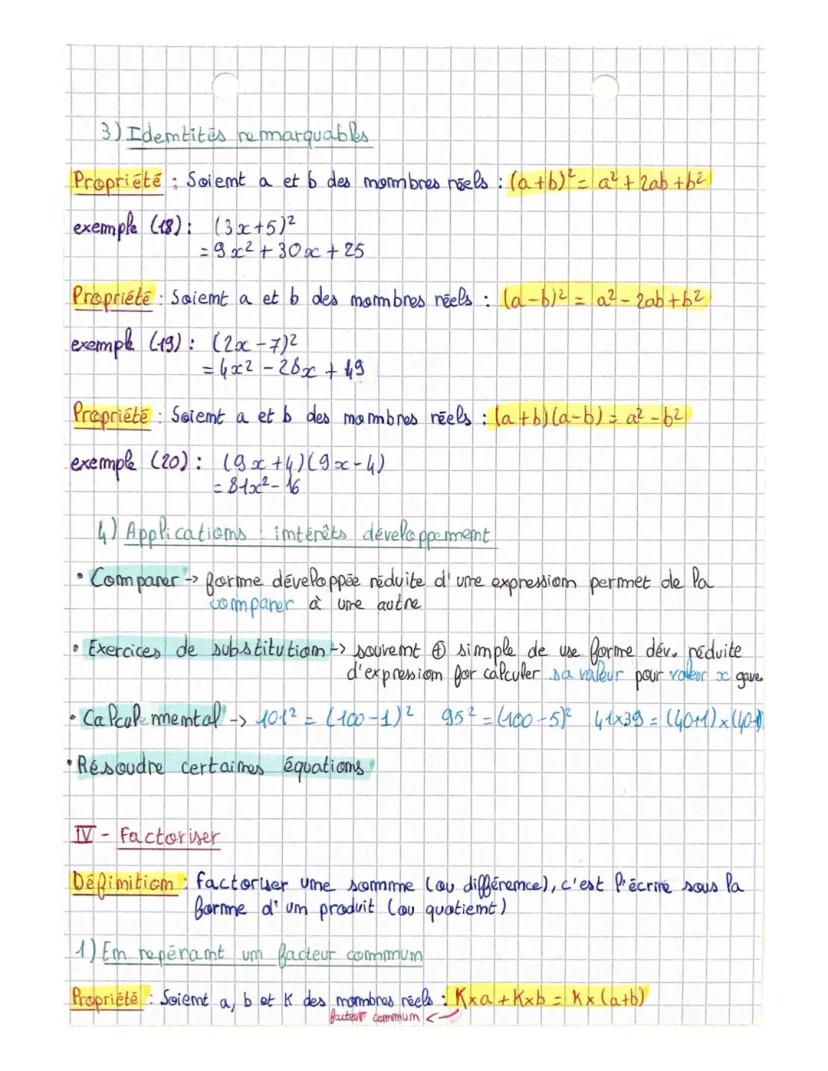 3) Identités remarquables
Propriété : Soient a et b des nombres réels : (a+b)² = a² + 2ab + b²
exemple (18) : (3x+5)²
= 9x² + 30x + 25
Propriété : Soient a et b des nombres réels : (a-b)² = a² - 2ab + b²
exemple (19) : (2x-7)²
= 4x² - 28x + 49
Propriété : Soient a et b des nombres réels : (a+b)(a-b) = a² - b²
exemple (20) : (9x+4)(9x-4)
= 81x² - 16
4) Applications : intérêts développement
• Comparer -> forme développée réduite d'une expression permet de la
comparer à une autre
• Exercices de substitution -> souvent ⊕ simple de use forme dév. réduite
d'expression for calculer sa valeur pour valeur x gave
• Calcul mental -> 101² = (100-1)² 95² = (100-5)² 41x39 = (40+1)x(40-1)
• Résoudre certaines équations
IV - Factoriser
Définition : factoriser une somme (ou différence), c'est l'écrire sous la
forme d'un produit (ou quotient)
1) En repérant un facteur commun
Propriété : Soient a, b et K des nombres réels : Kxa + Kxb = Kx(a+b)
facteur commun <-